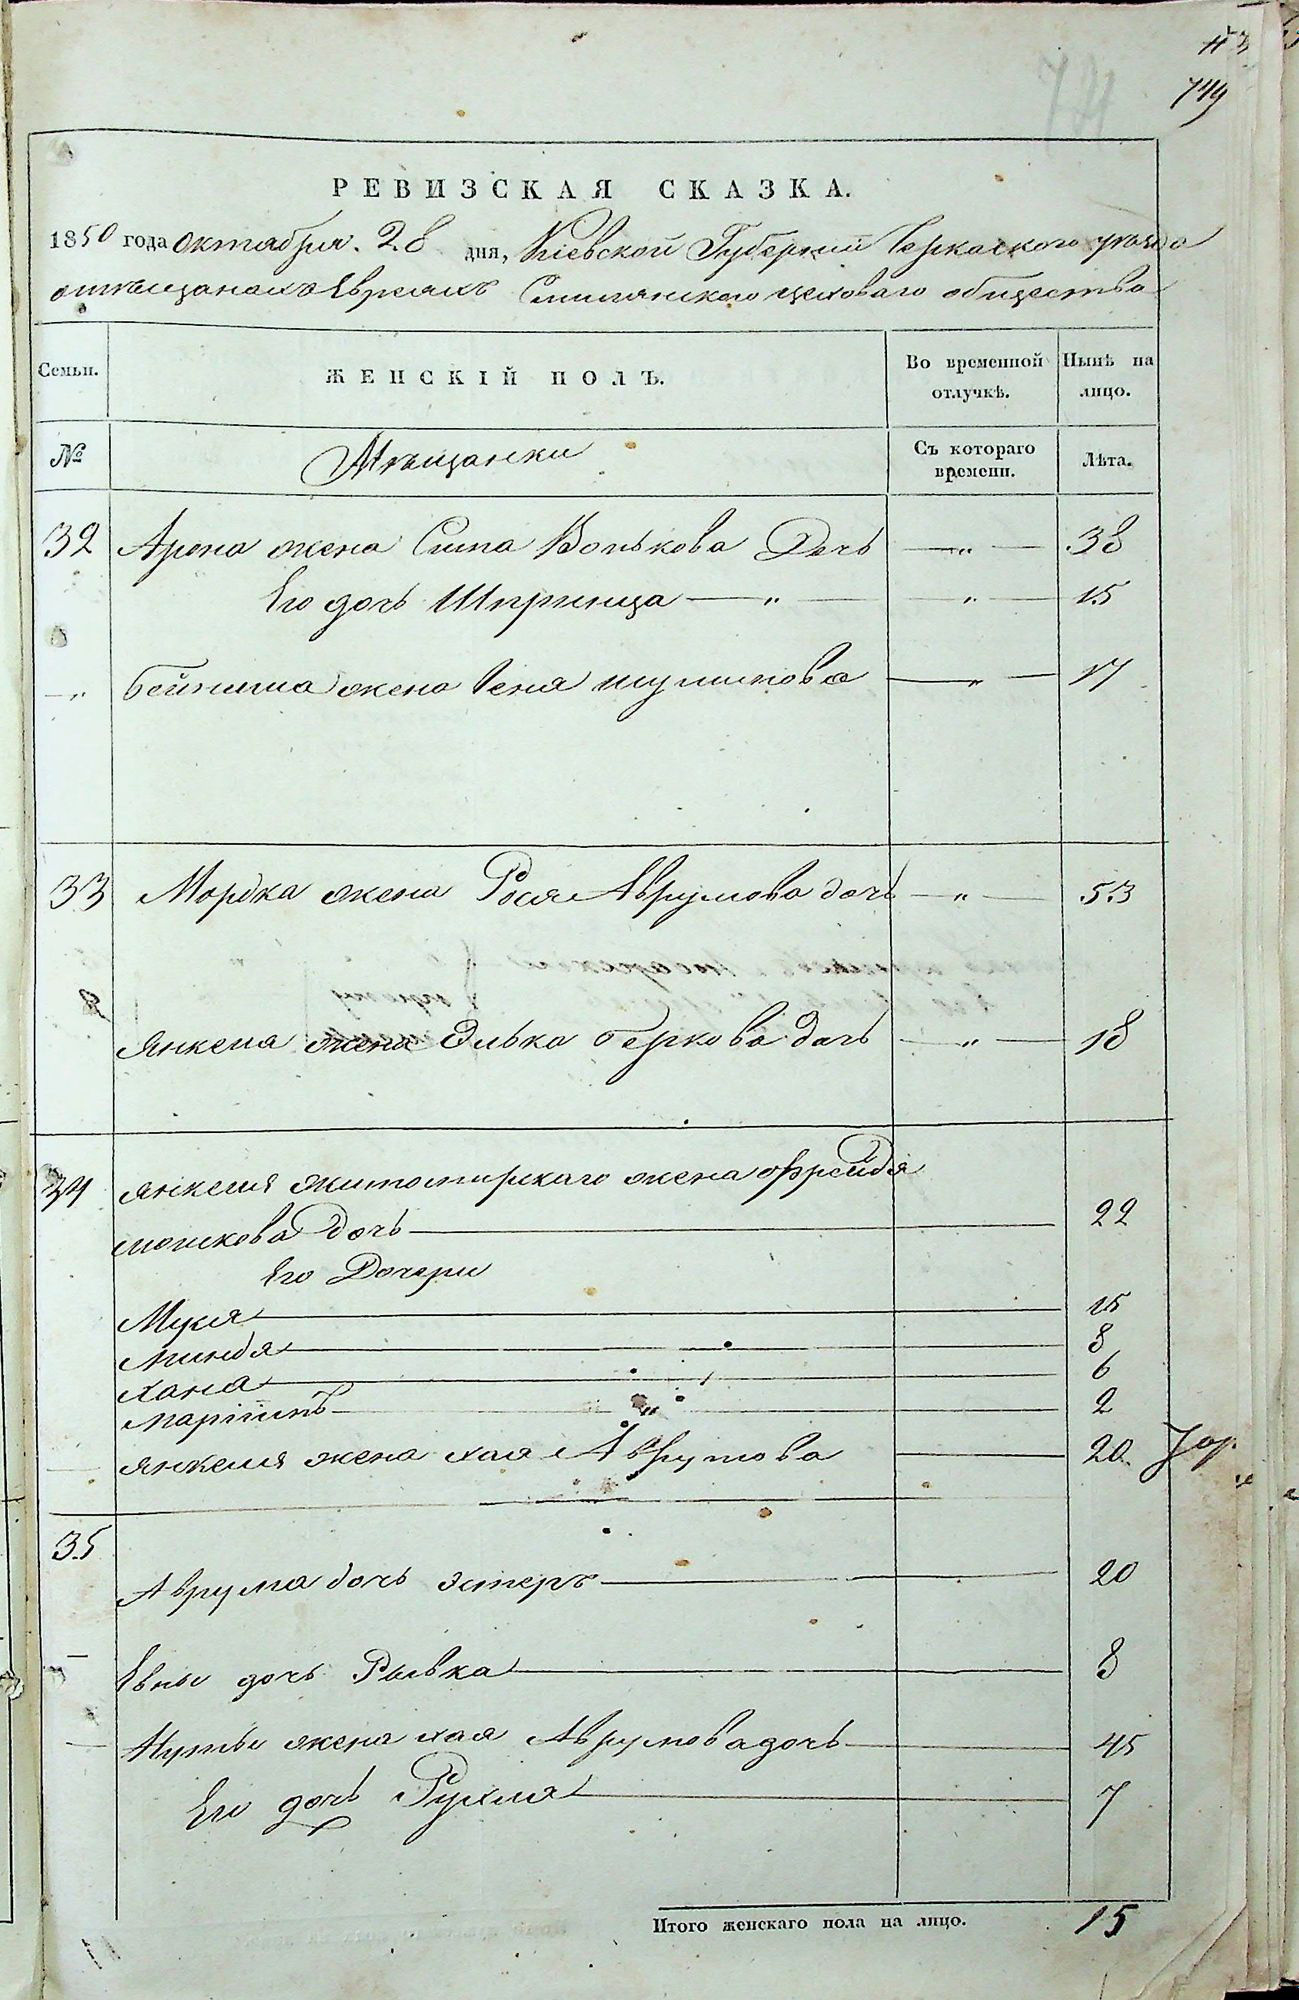 749
РЕВИЗСКАЯ СКАЗКА.
1850 года октября 28 дня, Кіевской Губерніи Черкаского уезда
о мѣщанахъ Евреяхъ Смилянского цеховаго общества
Семьи. ЖЕНСКІЙ ПОЛЪ. Во временной отлучкѣ. Нынѣ на лицо.
№ Мѣщанки Съ котораго времени. Лѣта.
32 Арона жена Сипа Волькова Дочь — „ — 38
Его дочь Шпринца — „ — „ — 15
— „ Бейниша жена Геня шулимова — „ — 17
33 Мордка жена Рося Аврумова дочь — „ — 53
Янкеля жена Элька Беркова дочь — „ — 18
34 Янкеля житомирскаго жена Фрейдя
мошкова дочь — 22
Его Дочери
Муся — 15
Миндя — 8
Хана — 6
— 2
Янкеля жена хая Аврумова — 20
35
Аврума дочь Эстеръ — 20
— Евны дочь Рывка — 8
— Нуты жена хая Аврумова дочь — 45
Его дочь Рухля — 7
Итого женскаго пола на лицо. 15